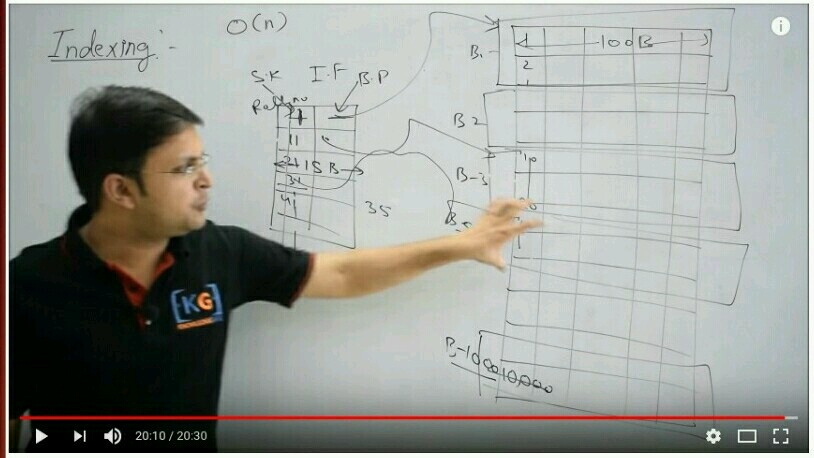 Indexing:-
O(n)
S.K
I.F
B.P
Roll no
11
21
15B
31
41
35
B1
1
100B
2
B2
B-3
B-1000
10,000
KG
i
20:10 / 20:30